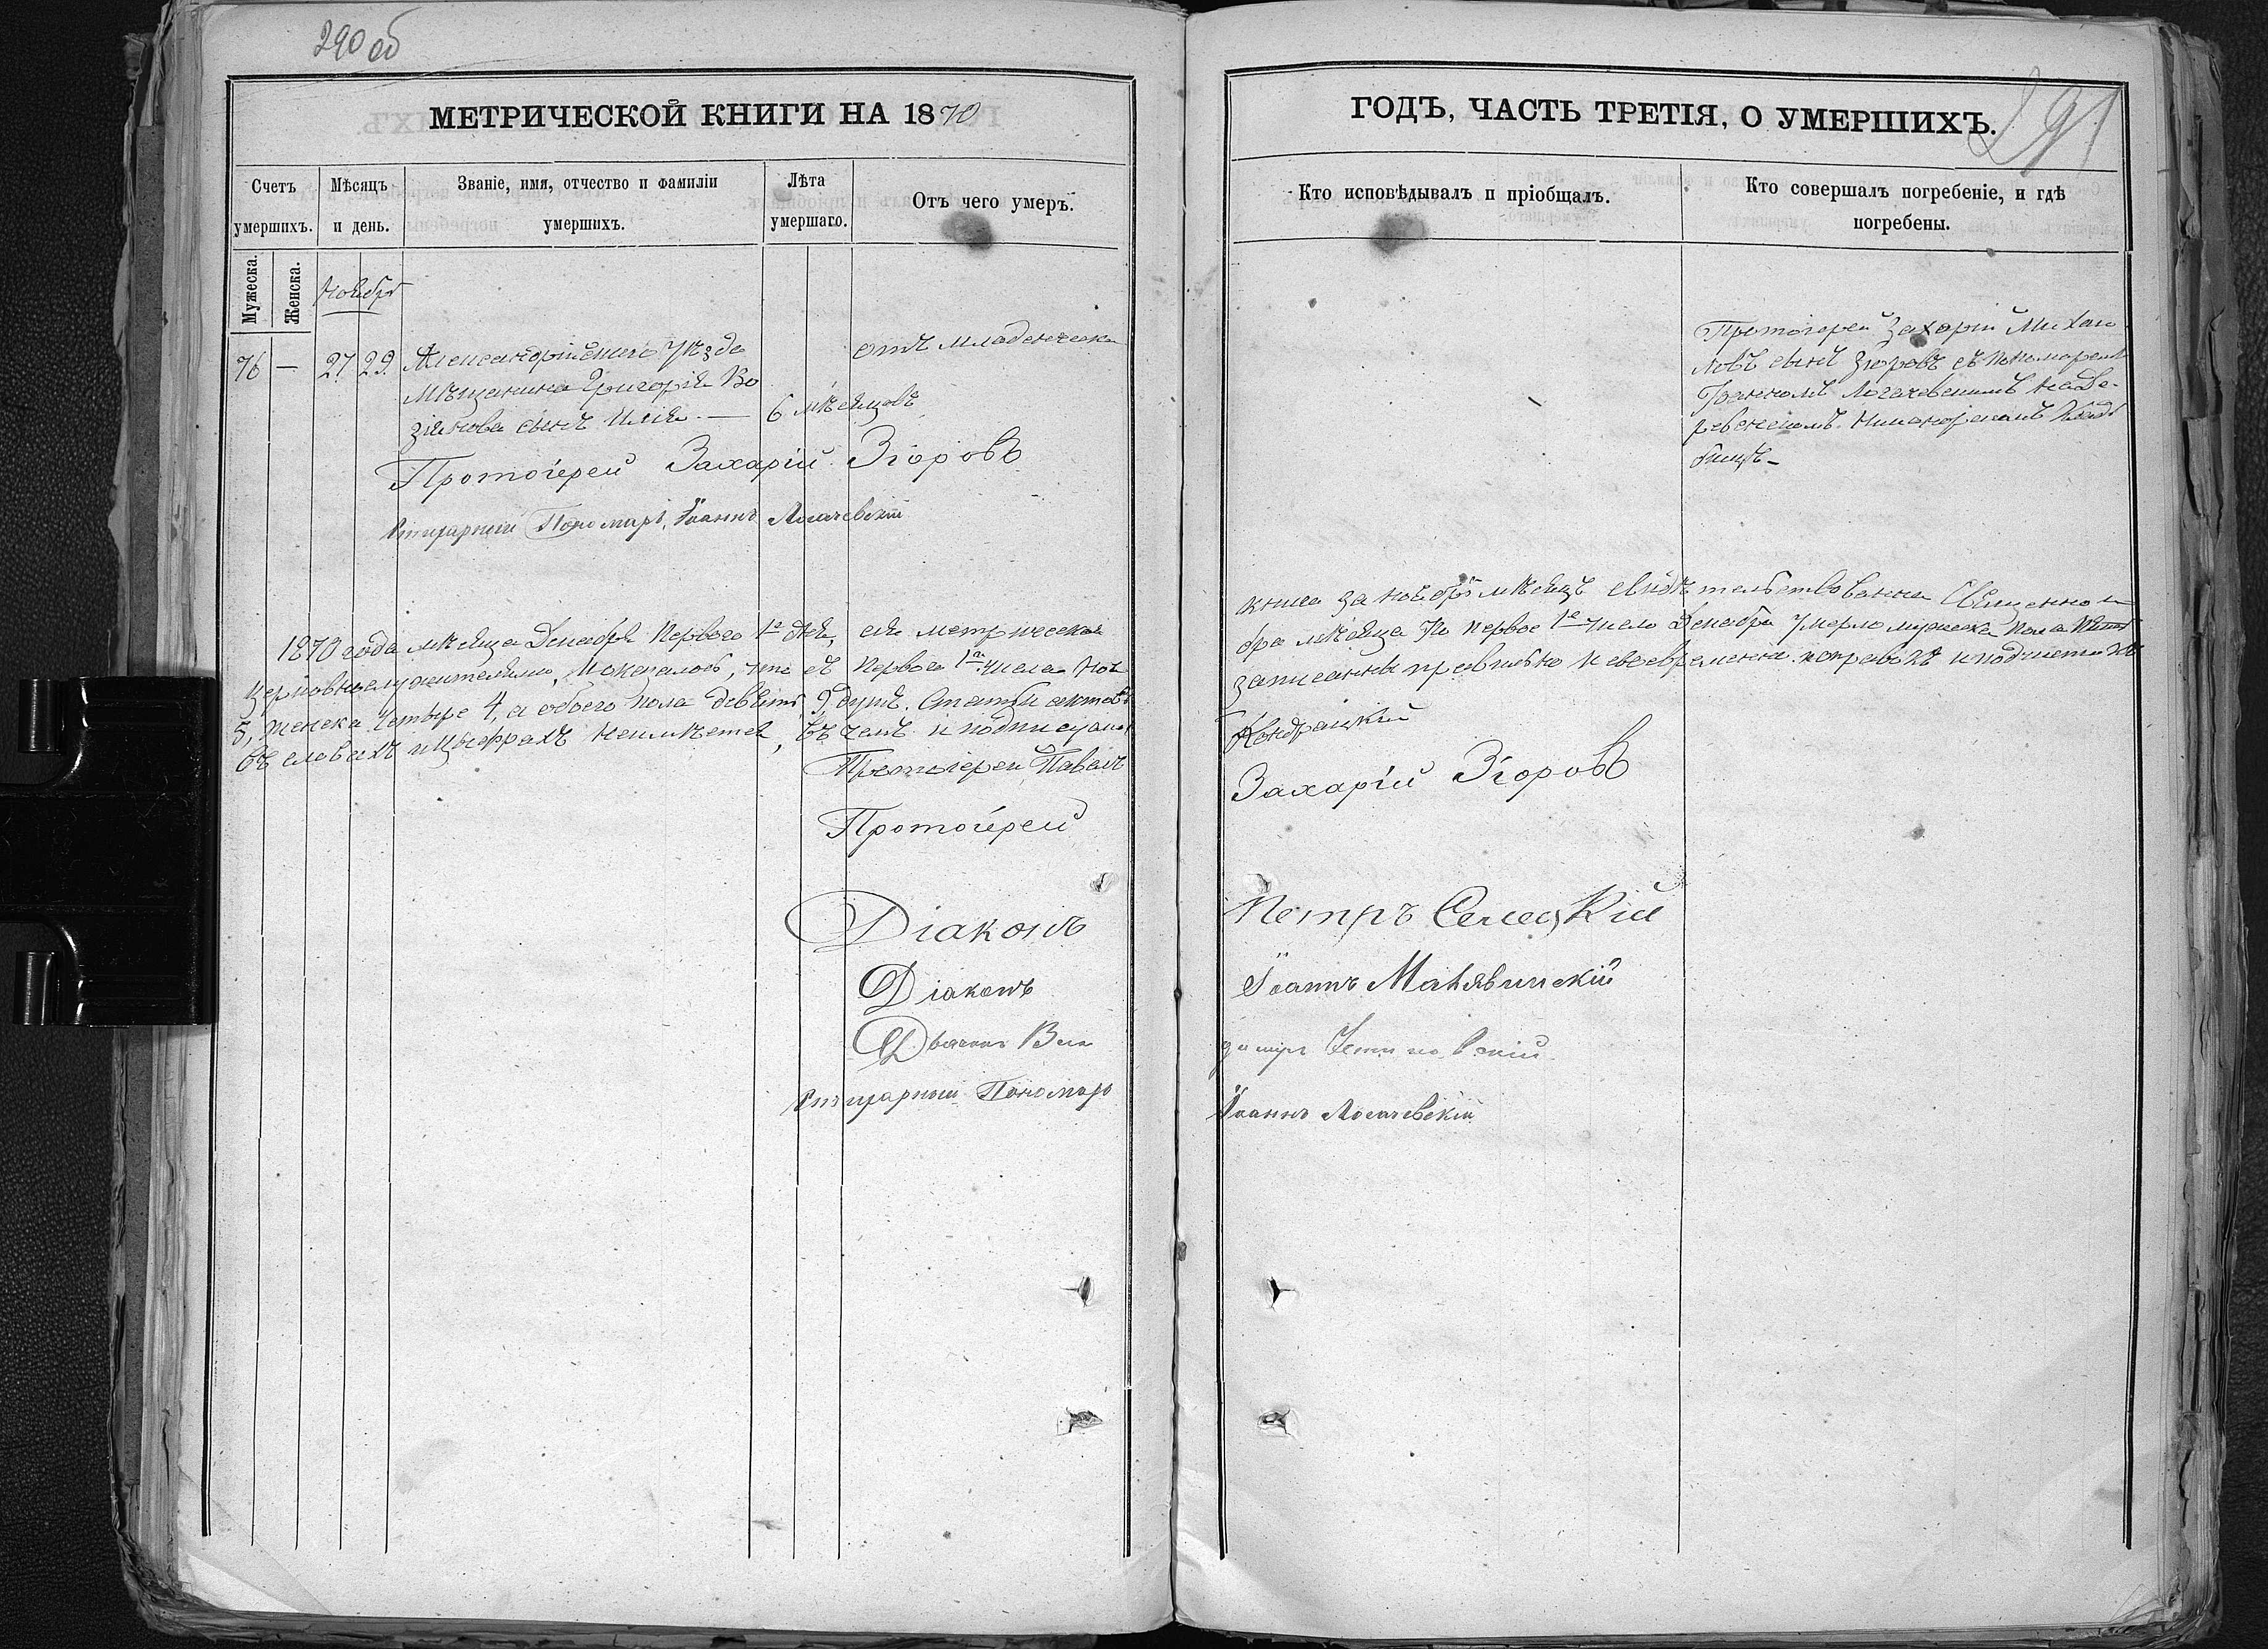 290 об
МЕТРИЧЕСКОЙ КНИГИ НА 1870
Счетъ умершихъ.
Мѣсяцъ и день.
Званіе, имя, отчество и фамиліи умершихъ.
Лѣта умершаго.
Отъ чего умеръ.
Мужеска.
Женска.
Ноябрь
76 — 27 29
Александрійскаго уѣзда
мѣщанина Григорія Во
зіянова сынъ Илія —
6 мѣсяцовъ
отъ младенческа
Протоіерей Захарій Згоровъ
Пономарь Іоаннъ Логачевскій
1870 года мѣсяца Декабря перваго 1го дня, сія метрическая
церковнослужителями, и оказалось, что съ перваго 1го числа Ноя
5, женска четыре 4, а обоего пола девять 9 душъ. Статьи актовъ
въ словахъ и цыфрахъ неимѣется, въ чемъ и подписуемся
Протоіерей Павелъ
Протоіерей
Діаконъ
Діаконъ
Дьячекъ
Пономарь
ГОДЪ, ЧАСТЬ ТРЕТІЯ, О УМЕРШИХЪ.
291
Кто исповѣдывалъ и пріобщалъ.
Кто совершалъ погребеніе, и гдѣ погребены.
Протоіерей Захарій Михаи
ловъ сынъ Згоровъ съ пономаремъ
Іоанномъ Логачевскимъ на де-
ревенскомъ клад
бищѣ —
книга за ноябрь мѣсяцъ свидѣтельствована Священно и
бря мѣсяца по первое 1е число Декабря умерло мужеска пола пять
записанны правильно и своевременно поправокъ и подчистокъ
Кондрацкій
Захарій Згоровъ
Петръ Селецкій
Іоаннъ Манявинскій
Іоаннъ Логачевскій